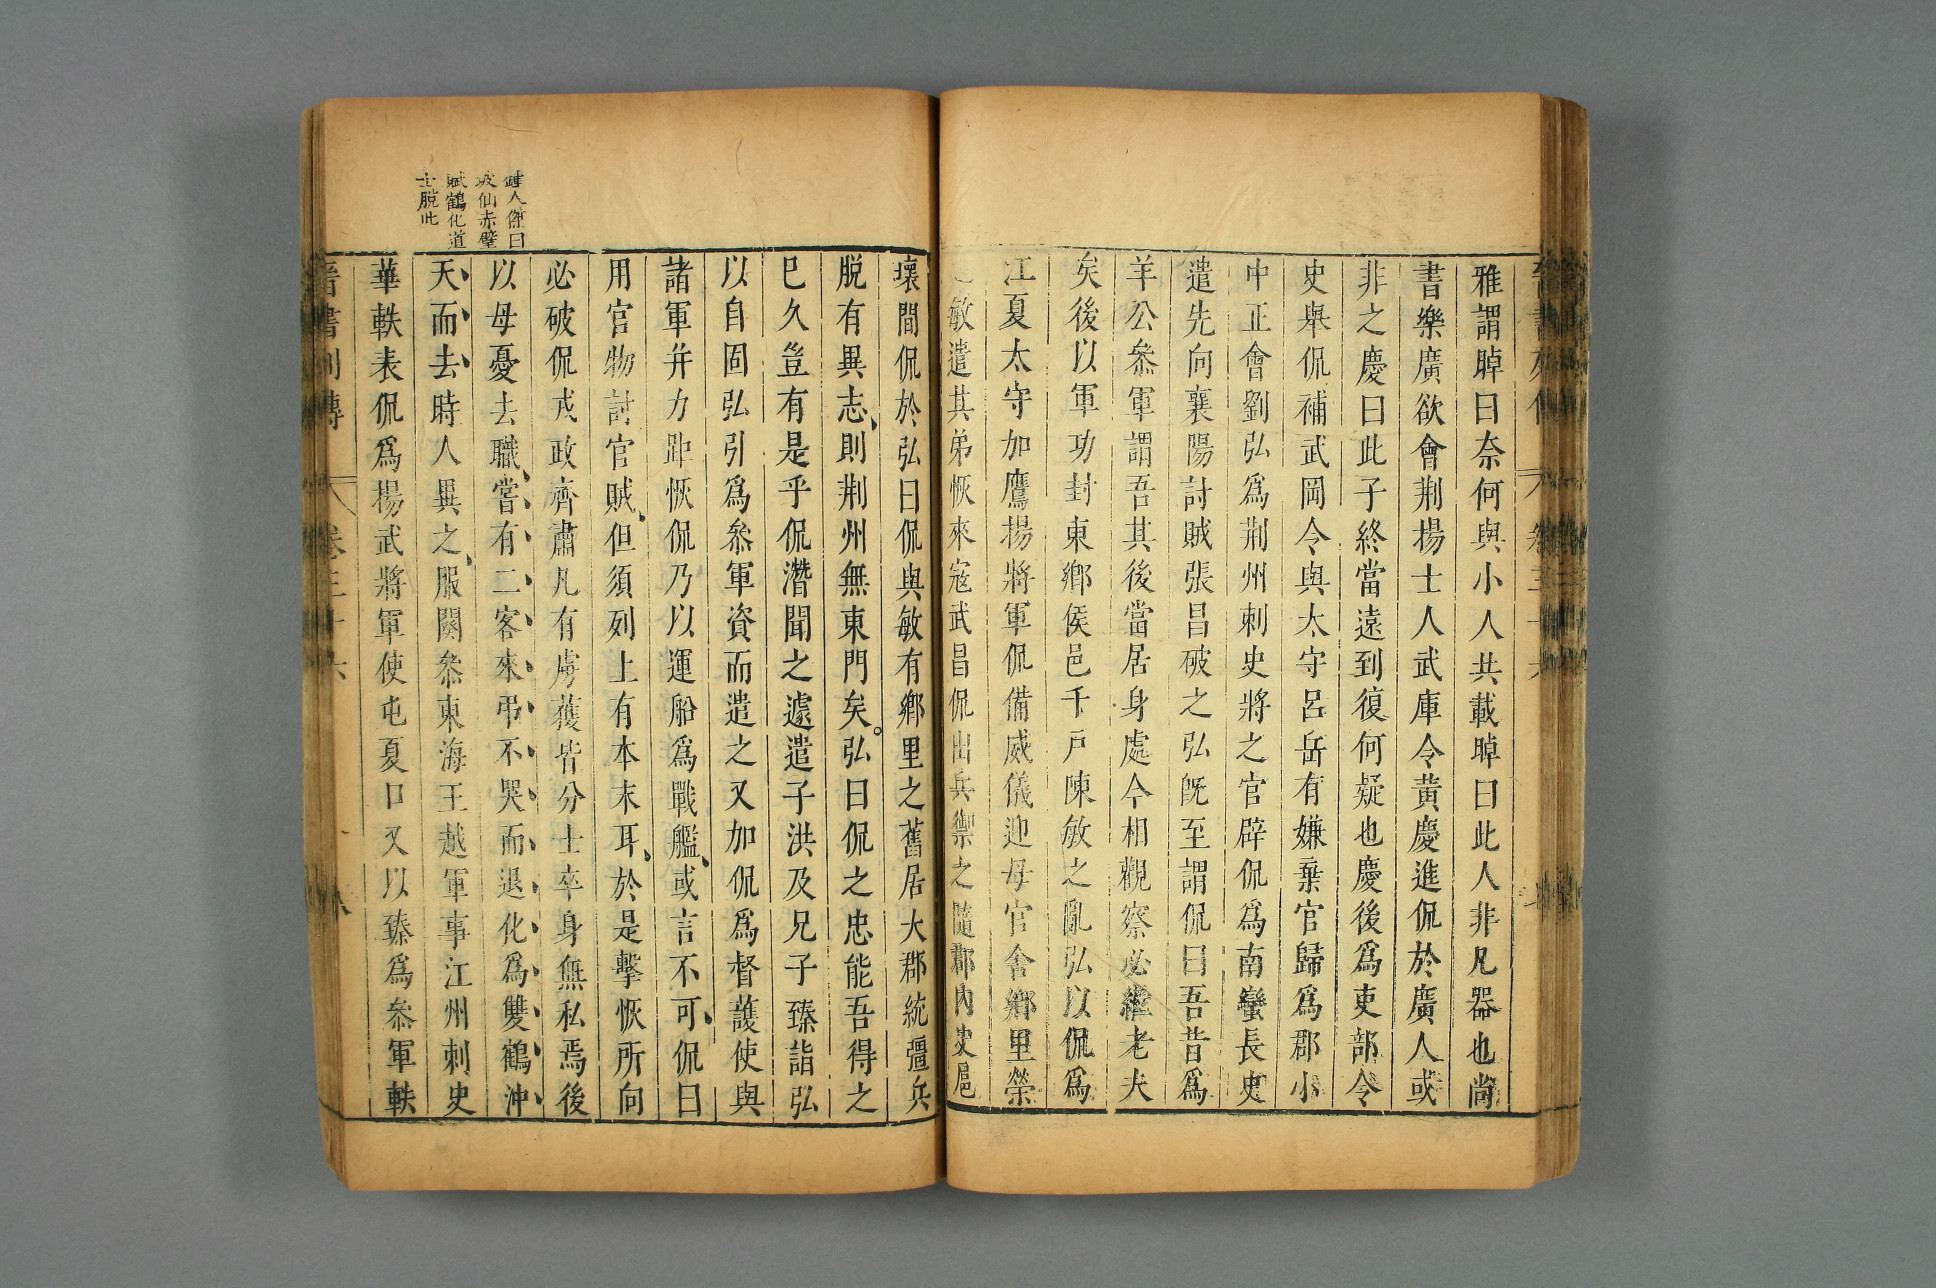 雅謂晫曰奈何與小人共載晫曰此人非凡器也尚
書樂廣欲會荆揚士人武庫令黃慶進侃於廣人或
非之慶曰此子終當遠到復何疑也慶後爲吏部令
史舉侃補武岡令與太守呂岳有嫌棄官歸爲郡小
中正會劉弘爲荆州刺史將之官辟侃爲南蠻長史
遣先向襄陽討賊張昌破之弘旣至謂侃曰吾昔爲
羊公叅軍謂吾其後當居身處今相觀察必繼老夫
矣後以軍功封東鄉侯邑千戸陳敏之亂弘以侃爲
江夏太守加鷹揚將軍侃備威儀迎母官舍鄉里榮
之敏遣其弟恢來寇武昌侃出兵禦之隨郡內史扈
壞間侃於弘曰侃與敏有鄉里之舊居大郡統彊兵
脫有異志則荆州無東門矣。弘曰侃之忠能吾得之
巳久豈有是乎侃潛聞之遽遣子洪及兄子臻詣弘
以自固弘引爲叅軍資而遣之又加侃爲督護使與
諸軍并力距恢侃乃以運船爲戰艦或言不可侃曰
用官物討官賊但須列上有本末耳於是擊恢所向
必破侃戎政齊肅凡有虜獲皆分士卒身無私焉後
以母憂去職嘗有二客來弔不哭而退化爲雙鶴沖
天而去時人異之服闋叅東海王越軍事江州刺史
華軼表侃爲揚武將軍使屯夏口又以臻爲叅軍軼
鍾人傑曰
坡仙赤壁
賦鶴化道
士脫此
晉書列傳 卷三十六